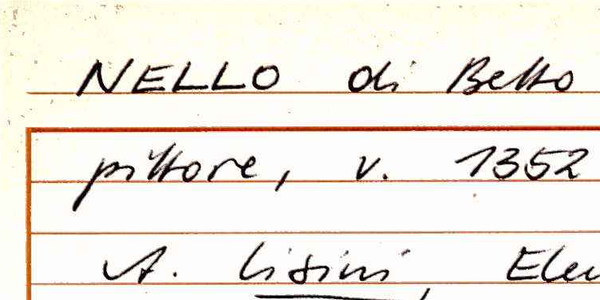 NELLO di Betto
pittore, v. 1352
A. Lisini, Ele